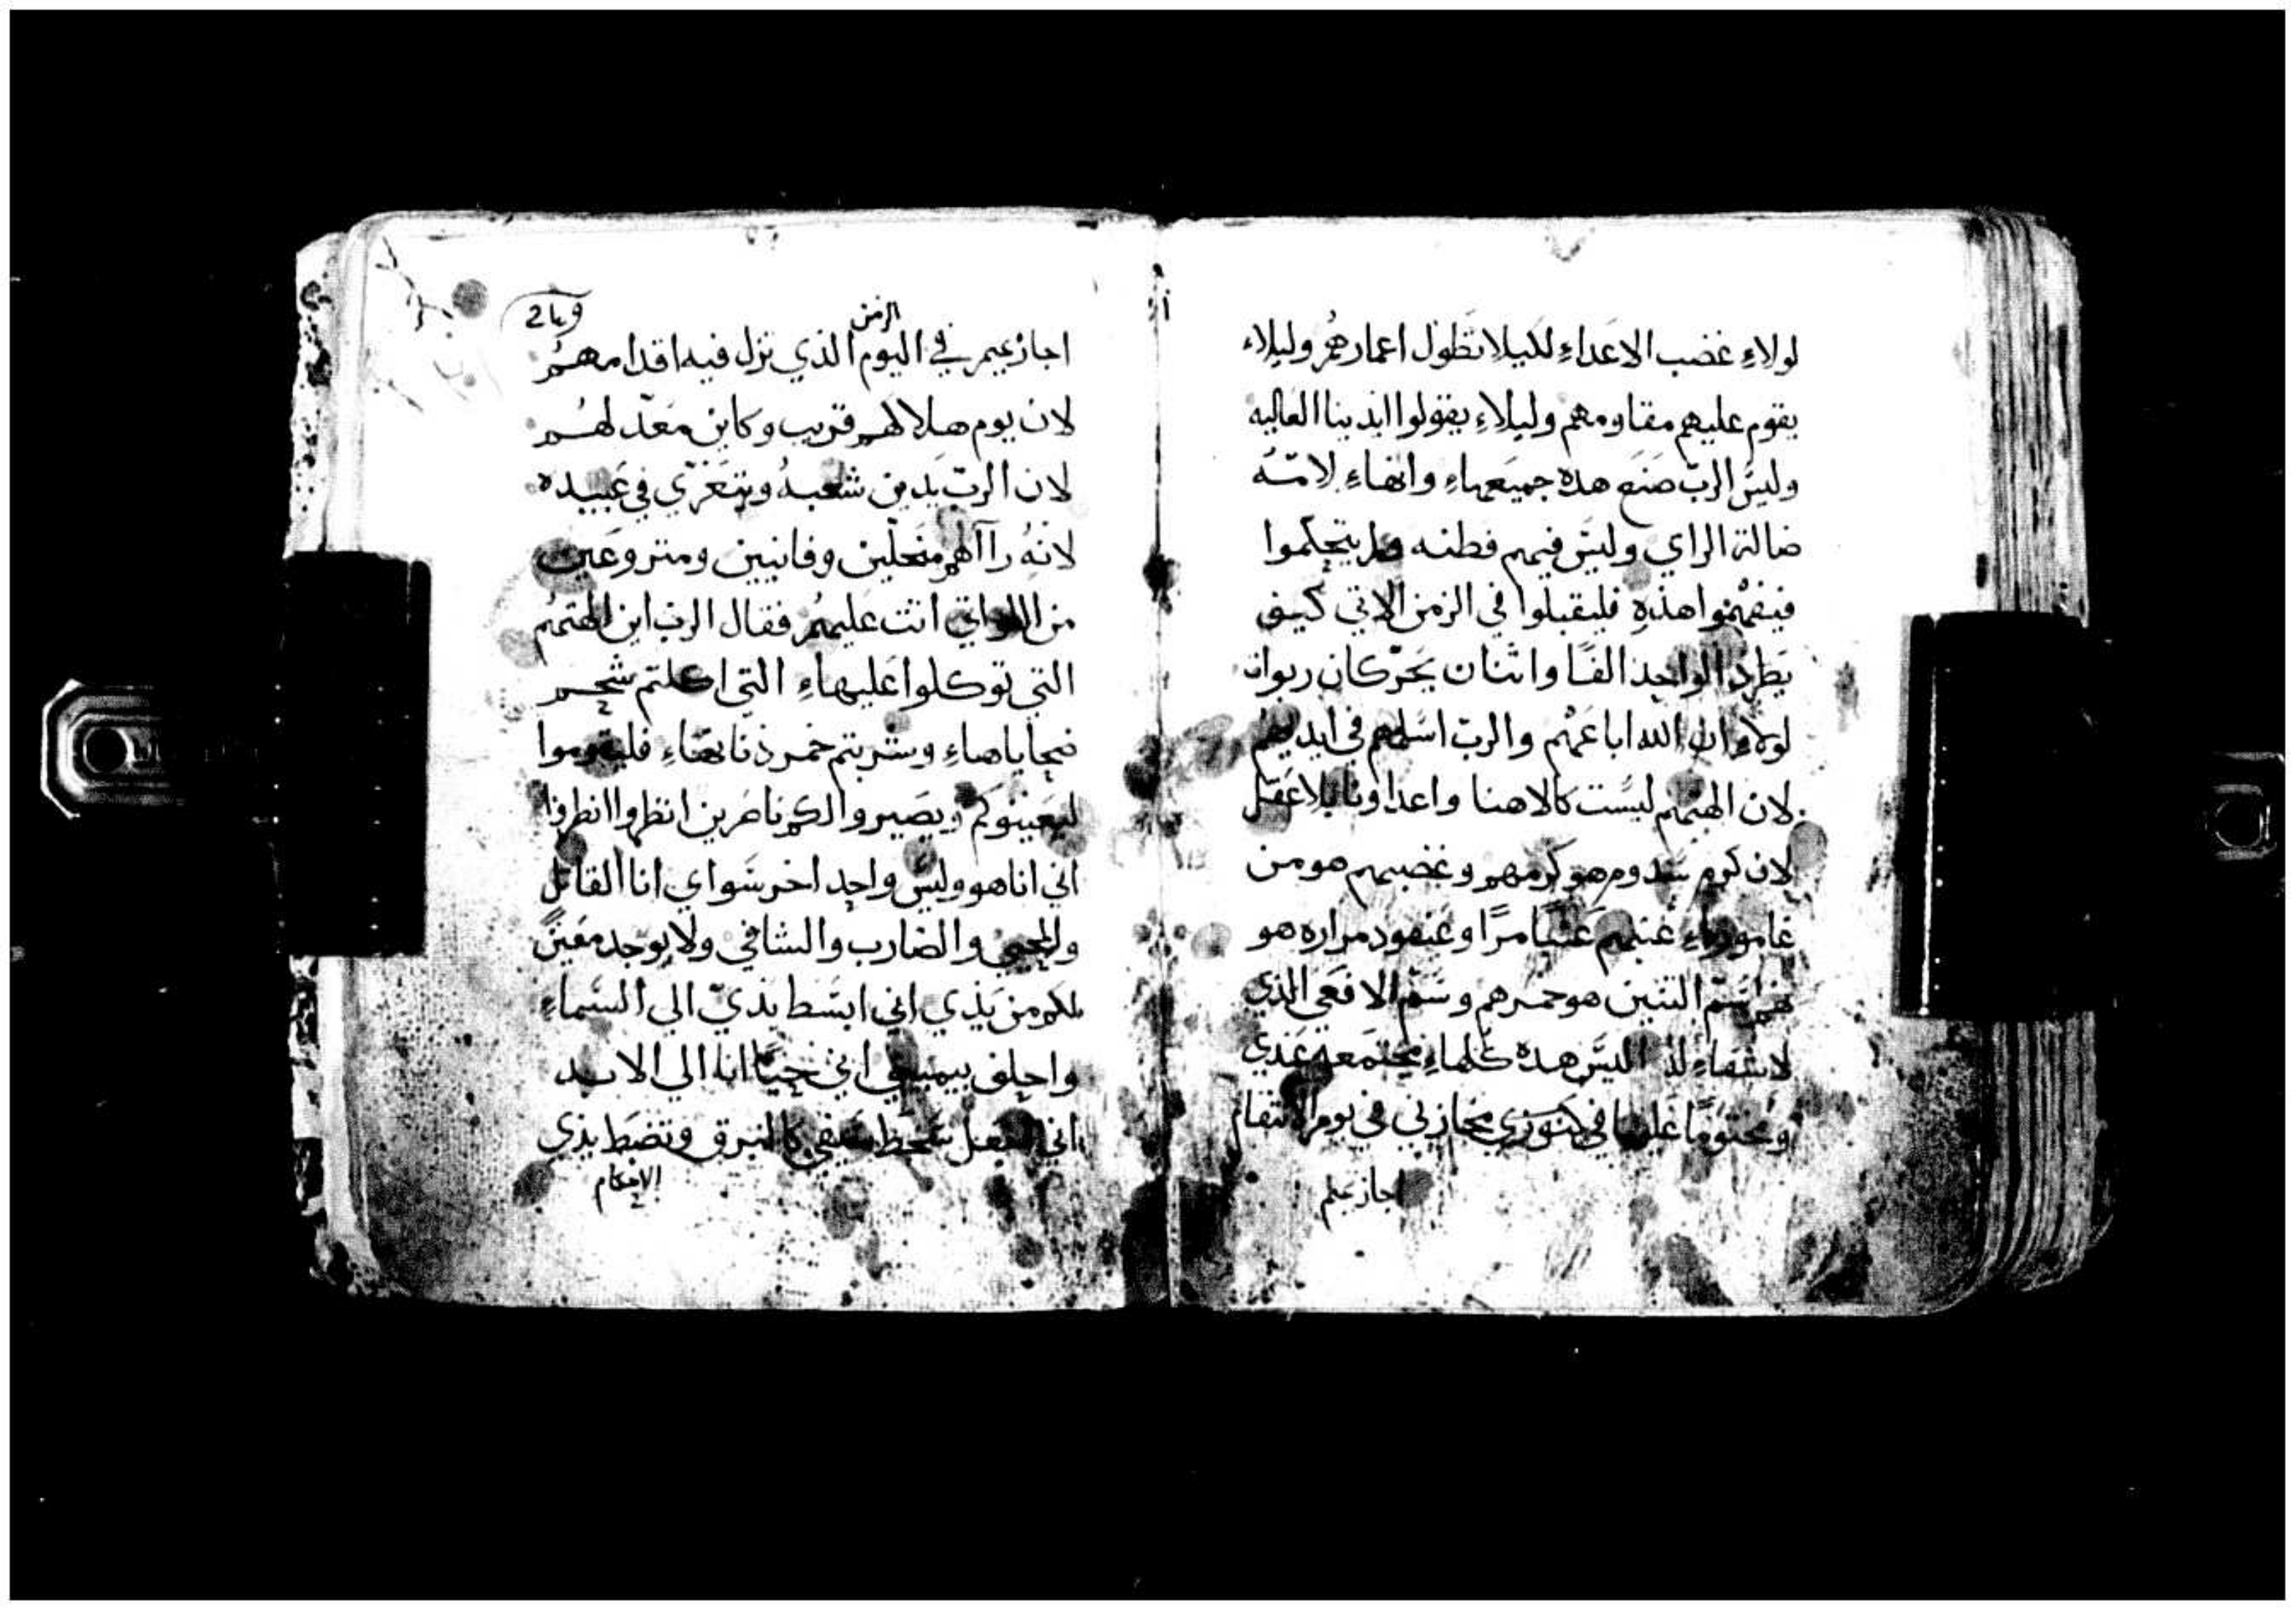 لولاءِ غضب الاعداءِ لكيلا تطول اعمارهُم وليلاء
يقوم عليهم مقاومهم وليلاءِ يقولوا ايدينا العاليه
وليس الربّ صنع هده جميعهاءِ وانهاءِ لامّه
ضالة الراي وليس فيهم فطنه ولم يتحكموا
فيفهموا هذه فليقبلوا في الزمن الاتي كيف
يطرد الواحد الفًا واثنان يحرّكان ربوات
لولا ان الله اباعهم والرب اسلمهم في ايديهم
لان الهتهم ليست كالاهنا واعداونا بلا عقل
لان كرم سدوم هو كرمهم وغضبهم هو من
غاموراءِ عنبهم عنبًا مرًا وعنقود مراره هو
لهم سم التنين هو خمرهم وسم الافعي الذي
لا شفاءِ له اليس هده كلهاءِ مجتمعه عندي
ومختومًا عليها في كنوزي مجازني في يوم الانتقام
اجازيهم
249
الزمن
اجازيهم في اليوم الذي تزل فيه اقدامهم
لان يوم هلاكهم قريب وكاين معدّ لهم
لان الربّ يدين شعبهُ ويتعزّي في عبيده
لانهُ راآهم منحلّين وفانيين ومنزوعين
من اللواتي اتت عليهُم فقال الرب اين الهتهُم
التي توكلوا عليهاءِ التي اكلتم شحم
ضحاياهاءِ وشربتم خمر ذباتهاءِ فليقوموا
ليعينوكم ويصيروا لكم ناصرين انظروا انظروا
اني انا هو وليس واحد اخر سواي انا القاتل
والمحيي والضارب والشافي ولا يوجد معينً
لكم من يدي اني ابسط يديّ الي السماءِ
واحلف بيميني اني حيًا انا الي الابد
اني اصقل سيفي كالبرق وتضبط يدي
الاحكام